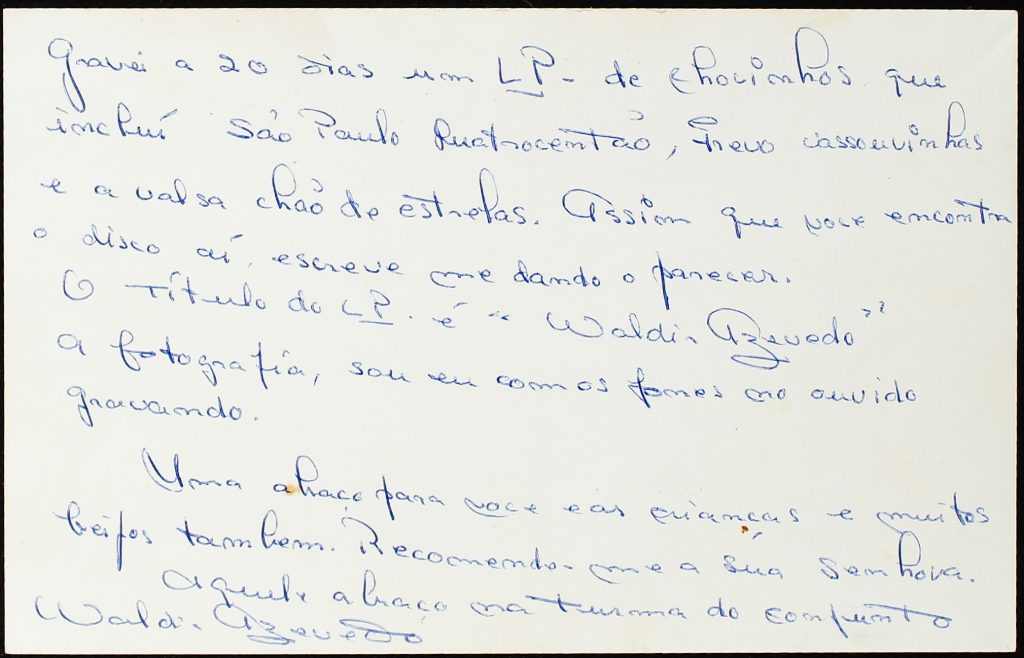 Gravei a 20 dias um LP - de chorinhos que
incluí São Paulo Quatrocentão, Frevo vassourinhas
e a valsa chão de estrelas. Assim que voce encontra
o disco aí, escreve me dando o parecer.
O Título do LP. é " Waldir Azevedo"
a fotografia, sou eu com os fones no ouvido
gravando.
Uma abraço para voce e as crianças e muitos
beijos tambem. Recomende-me a súa senhora.
aquele abraço na turma do conjunto
Waldir Azevedo